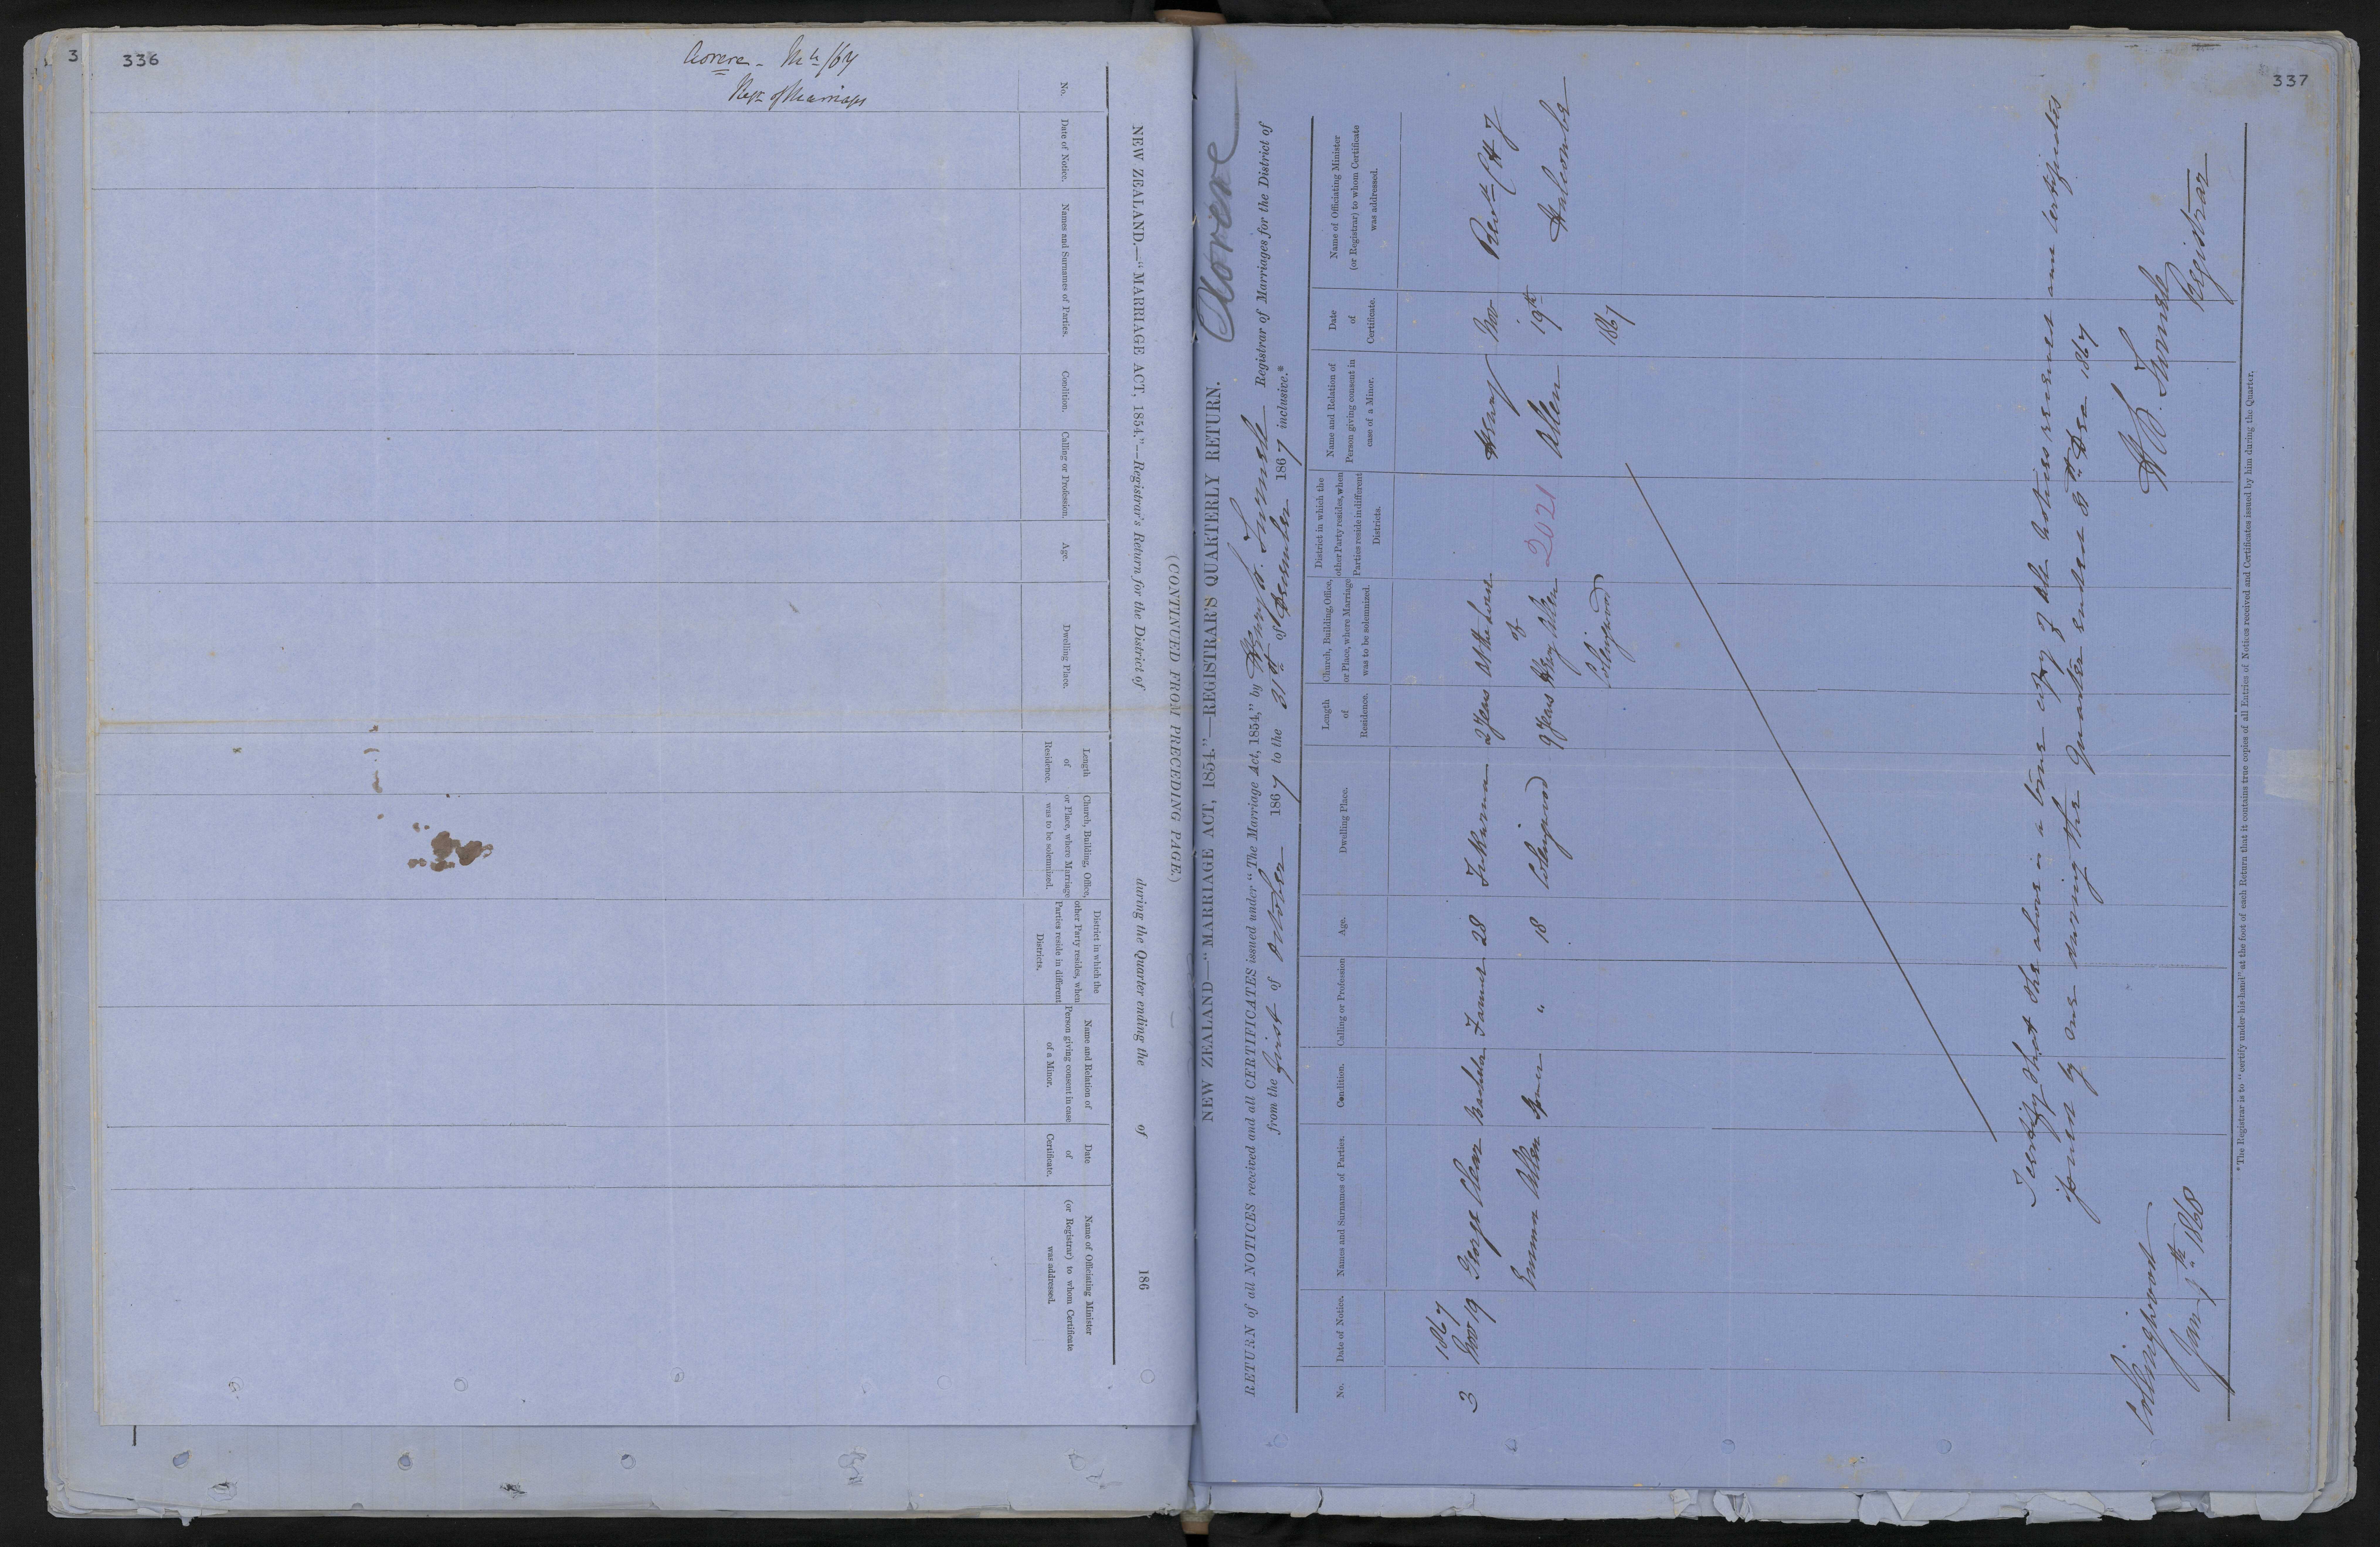 3
336
Aorere - Mch /67
Regr of Marriages
NEW ZEALAND.—"MARRIAGE ACT, 1854."—Registrar's Return for the District of during the Quarter ending the of 186
(CONTINUED FROM PRECEDING PAGE.)
No.
Date of Notice.
Names and Surnames of Parties.
Condition.
Calling or Profession.
Age.
Dwelling Place.
Length
of
Residence.
Church, Building, Office,
or Place, where Marriage
was to be solemnized.
District in which the
other Party resides, when
Parties reside in different
Districts.
Name and Relation of
Person giving consent in case
of a Minor.
Date
of
Certificate.
Name of Officiating Minister
(or Registrar) to whom Certificate
was addressed.
337
NEW ZEALAND—"MARRIAGE ACT, 1854."—REGISTRAR'S QUARTERLY RETURN. Aorere
RETURN of all NOTICES received and all CERTIFICATES issued under "The Marriage Act, 1854," by Registrar of Marriages for the District of
from the first of October 1867 to the 31st of December 1867 inclusive.*
No.
Date of Notice.
Names and Surnames of Parties.
Condition.
Calling or Profession
Age.
Dwelling Place.
Length
of
Residence.
Church, Building, Office,
or Place, where Marriage
was to be solemnized.
District in which the
other Party resides, when
Parties reside in different
Districts.
Name and Relation of
Person giving consent in
case of a Minor.
Date
of
Certificate.
Name of Officiating Minister
(or Registrar) to whom Certificate
was addressed.
1867
3 Nov 19 George Bachelor Farmer 28 2 Years At the house Henry Nov Revd
of
Emma Allen " 18 Collingwood 9 Years Henry Allen 2021 Allen 19th Halcombe
Collingwood 1867
I certify that the above is a true copy of the Notices received and Certificates
issued by me during the Quarter ended Dec 1867
Registrar
Collingwood
Jan 1868
*The Registrar is to "certify under his hand" at the foot of each Return that it contains true copies of all Entries of Notices received and Certificates issued by him during the Quarter.